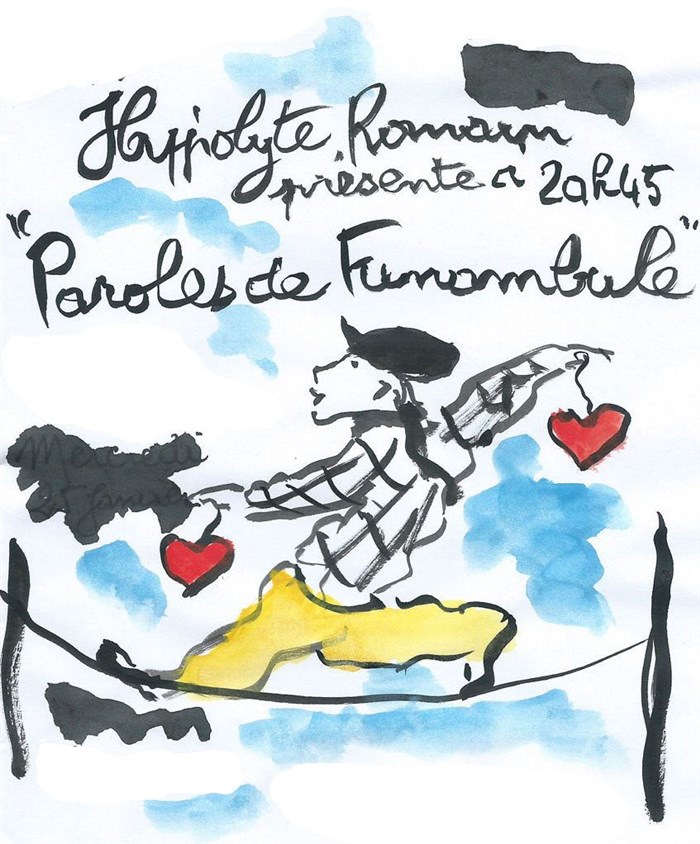 Hyppolyte Romain
présente à 20h45
"Paroles de Funambule"
Mercredi
25 Janvier